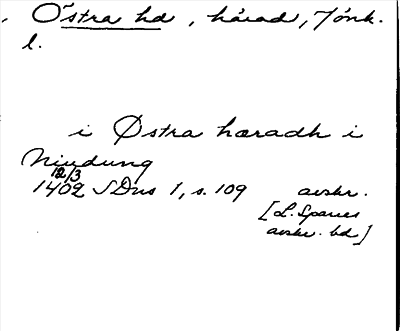 Östra hd, härad, Jönk.
l.
i Østra hæradh i
Niudung
12/3
1402 SDns 1, s. 109 avskr.
[L. Sparres
avskr. bd]